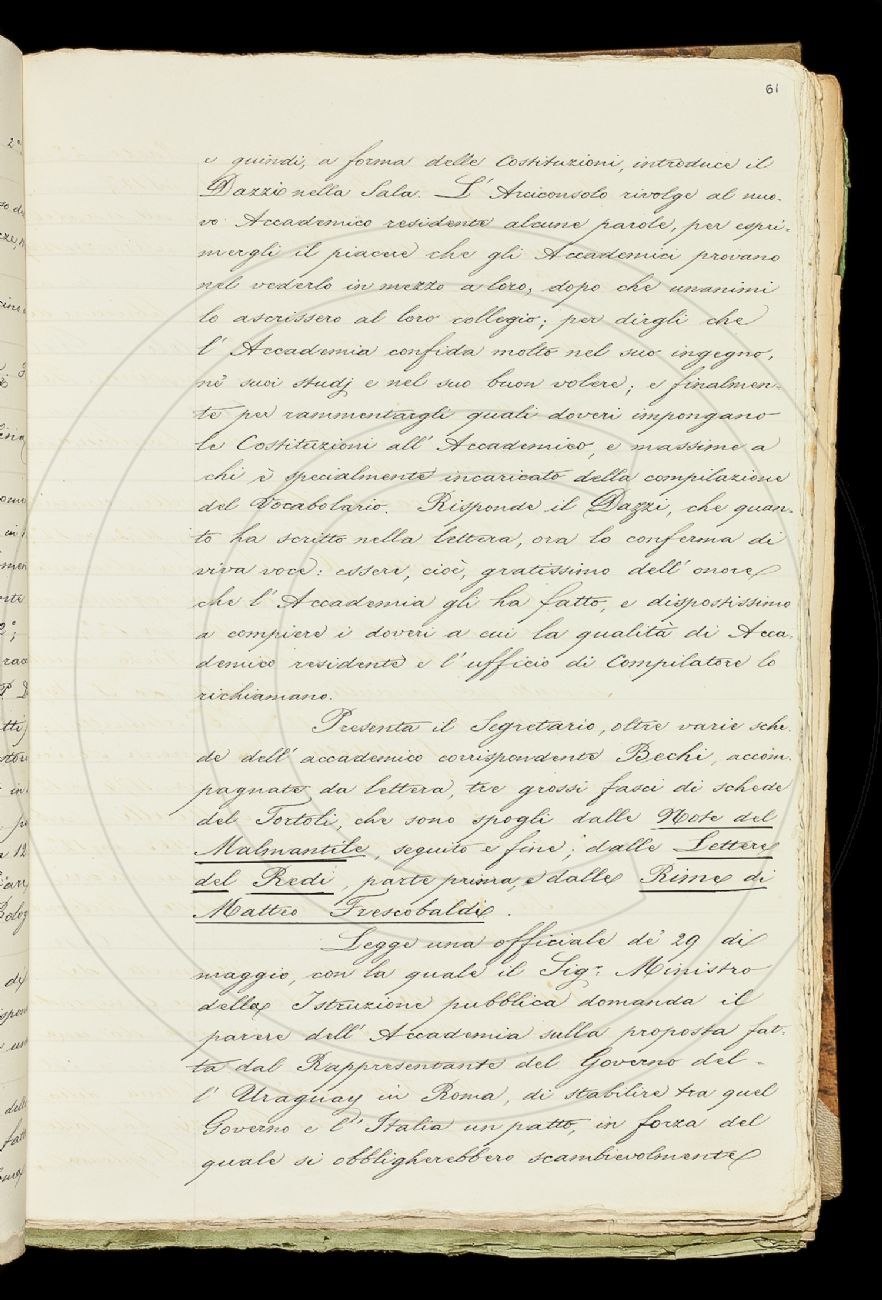 61
e quindi, a forma delle Costituzioni, introduce il
Dazzi nella Sala. L' Arciconsolo rivolge al nuo-
vo Accademico residente alcune parole, per espri-
mergli il piacere che gli Accademici provano
nel vederlo in mezzo a loro, dopo che unanimi
lo ascrissero al loro collegio; per dirgli che
l' Accademia confida molto nel suo ingegno,
ne' suoi studj e nel suo buon volere; e finalmen-
te per rammentargli quali doveri impongano
le Costituzioni all' Accademico, e massime a
chi è specialmente incaricato della compilazione
del Vocabolario. Risponde il Dazzi, che quan-
to ha scritto nella lettera, ora lo conferma di
viva voce: essere, cioè, gratissimo dell' onore
che l' Accademia gli ha fatto, e dispostissimo
a compiere i doveri a cui la qualità di Acca-
demico residente e l' ufficio di Compilatore lo
richiamano.
Presenta il Segretario, oltre varie sche-
de dell' accademico corrispondente Bechi, accom-
pagnate da lettera, tre grossi fasci di schede
del Tortoli, che sono spogli dalle Note del
Malmantile, seguito e fine; dalle Lettere
del Redi, parte prima, e dalle Rime di
Matteo Frescobaldi.
Legge una officiale de' 29 di
maggio, con la quale il Sig.r Ministro
della Istruzione pubblica domanda il
parere dell' Accademia sulla proposta fat-
ta dal Rappresentante del Governo del-
l' Uraguay in Roma, di stabilire tra quel
Governo e l' Italia un patto, in forza del
quale si obbligherebbero scambievolmente